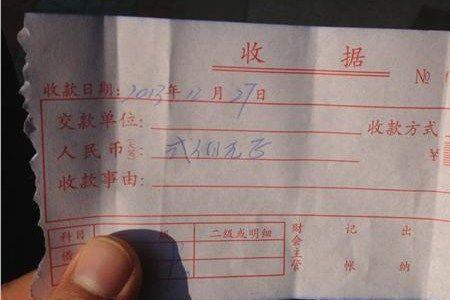 收 据
№
收款日期: 2013 年 11 月 27 日
交款单位: 收款方式
人民币(大写): 贰佰元正 ¥
收款事由:
科目 二级或明细 财会主管 记帐 出纳
借